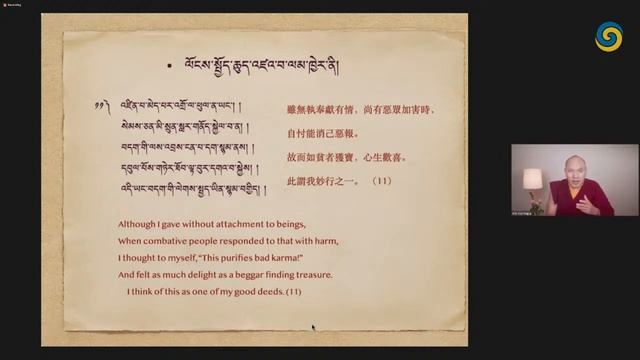 • ལོངས་སྤྱོད་ཆུད་འཛའ་བ་ལམ་ཁྱེར་ནི།
༡༡༽ འཛིན་པ་མེད་པར་འགྲོ་ལ་ཕུལ་ན་ཡང་། །
སེམས་ཅན་མི་སྲུན་སླར་གནོད་སྐྱེལ་བ་ན། །
བདག་གི་ལས་འབྲས་ངན་པ་དག་སྙམ་ནས། །
དབུལ་པོས་གཏེར་ཐོབ་ལྟ་བུར་དགའ་བ་སྐྱེས། །
འདི་ཡང་བདག་གི་ལེགས་སྤྱད་ཡིན་སྙམ་བགྱིད། །
雖無執奉獻有情，尚有惡眾加害時，
自忖能消己惡報。
故而如貧者獲寶，心生歡喜。
此謂我妙行之一。 （11）
Although I gave without attachment to beings,
When combative people responded to that with harm,
I thought to myself, “This purifies bad karma!”
And felt as much delight as a beggar finding treasure.
I think of this as one of my good deeds. (11)